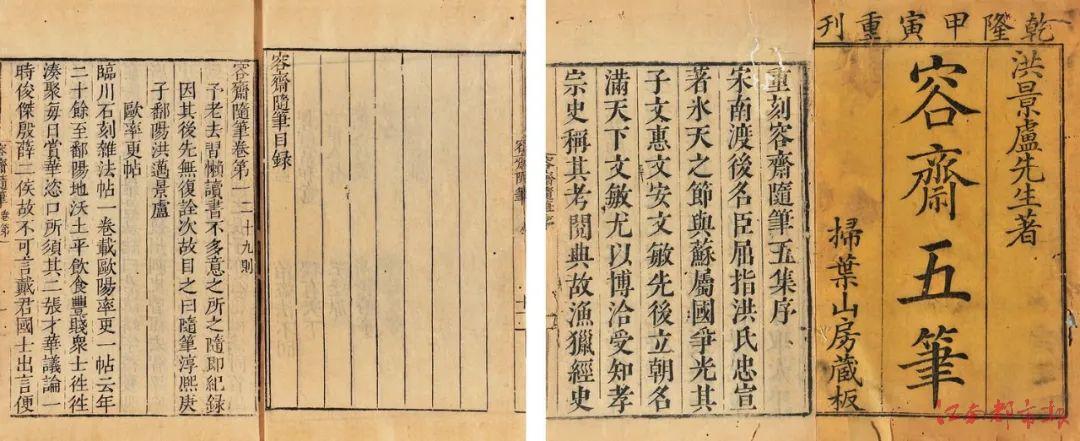 乾隆甲寅重刊
洪景盧先生著
容齋五筆
掃葉山房蔵板
重刻容齋隨筆五集序
宋南渡後名臣屈指洪氏忠宣
著氷天之節與蘇屬國爭光其
子文惠文安文敏先後立朝名
滿天下文敏尤以博洽受知孝
宗史稱其考閱典故漁獵經史
容齋隨筆
容齋隨筆目録
容齋隨筆卷第一 二十九則
予老去習懶讀書不多意之所之隨即紀録
因其後先無復詮次故目之曰隨筆淳熙庚
子鄱陽洪邁景盧
歐率更帖
臨川石刻雜法帖一卷載歐陽率更一帖云年
二十餘至鄱陽地沃土平飲食豐賤衆士徃徃
湊聚每日賞華恣口所須其二張才華議論一
時俊傑殷薛二侯故不可言戴君國士出言便
江南都市报